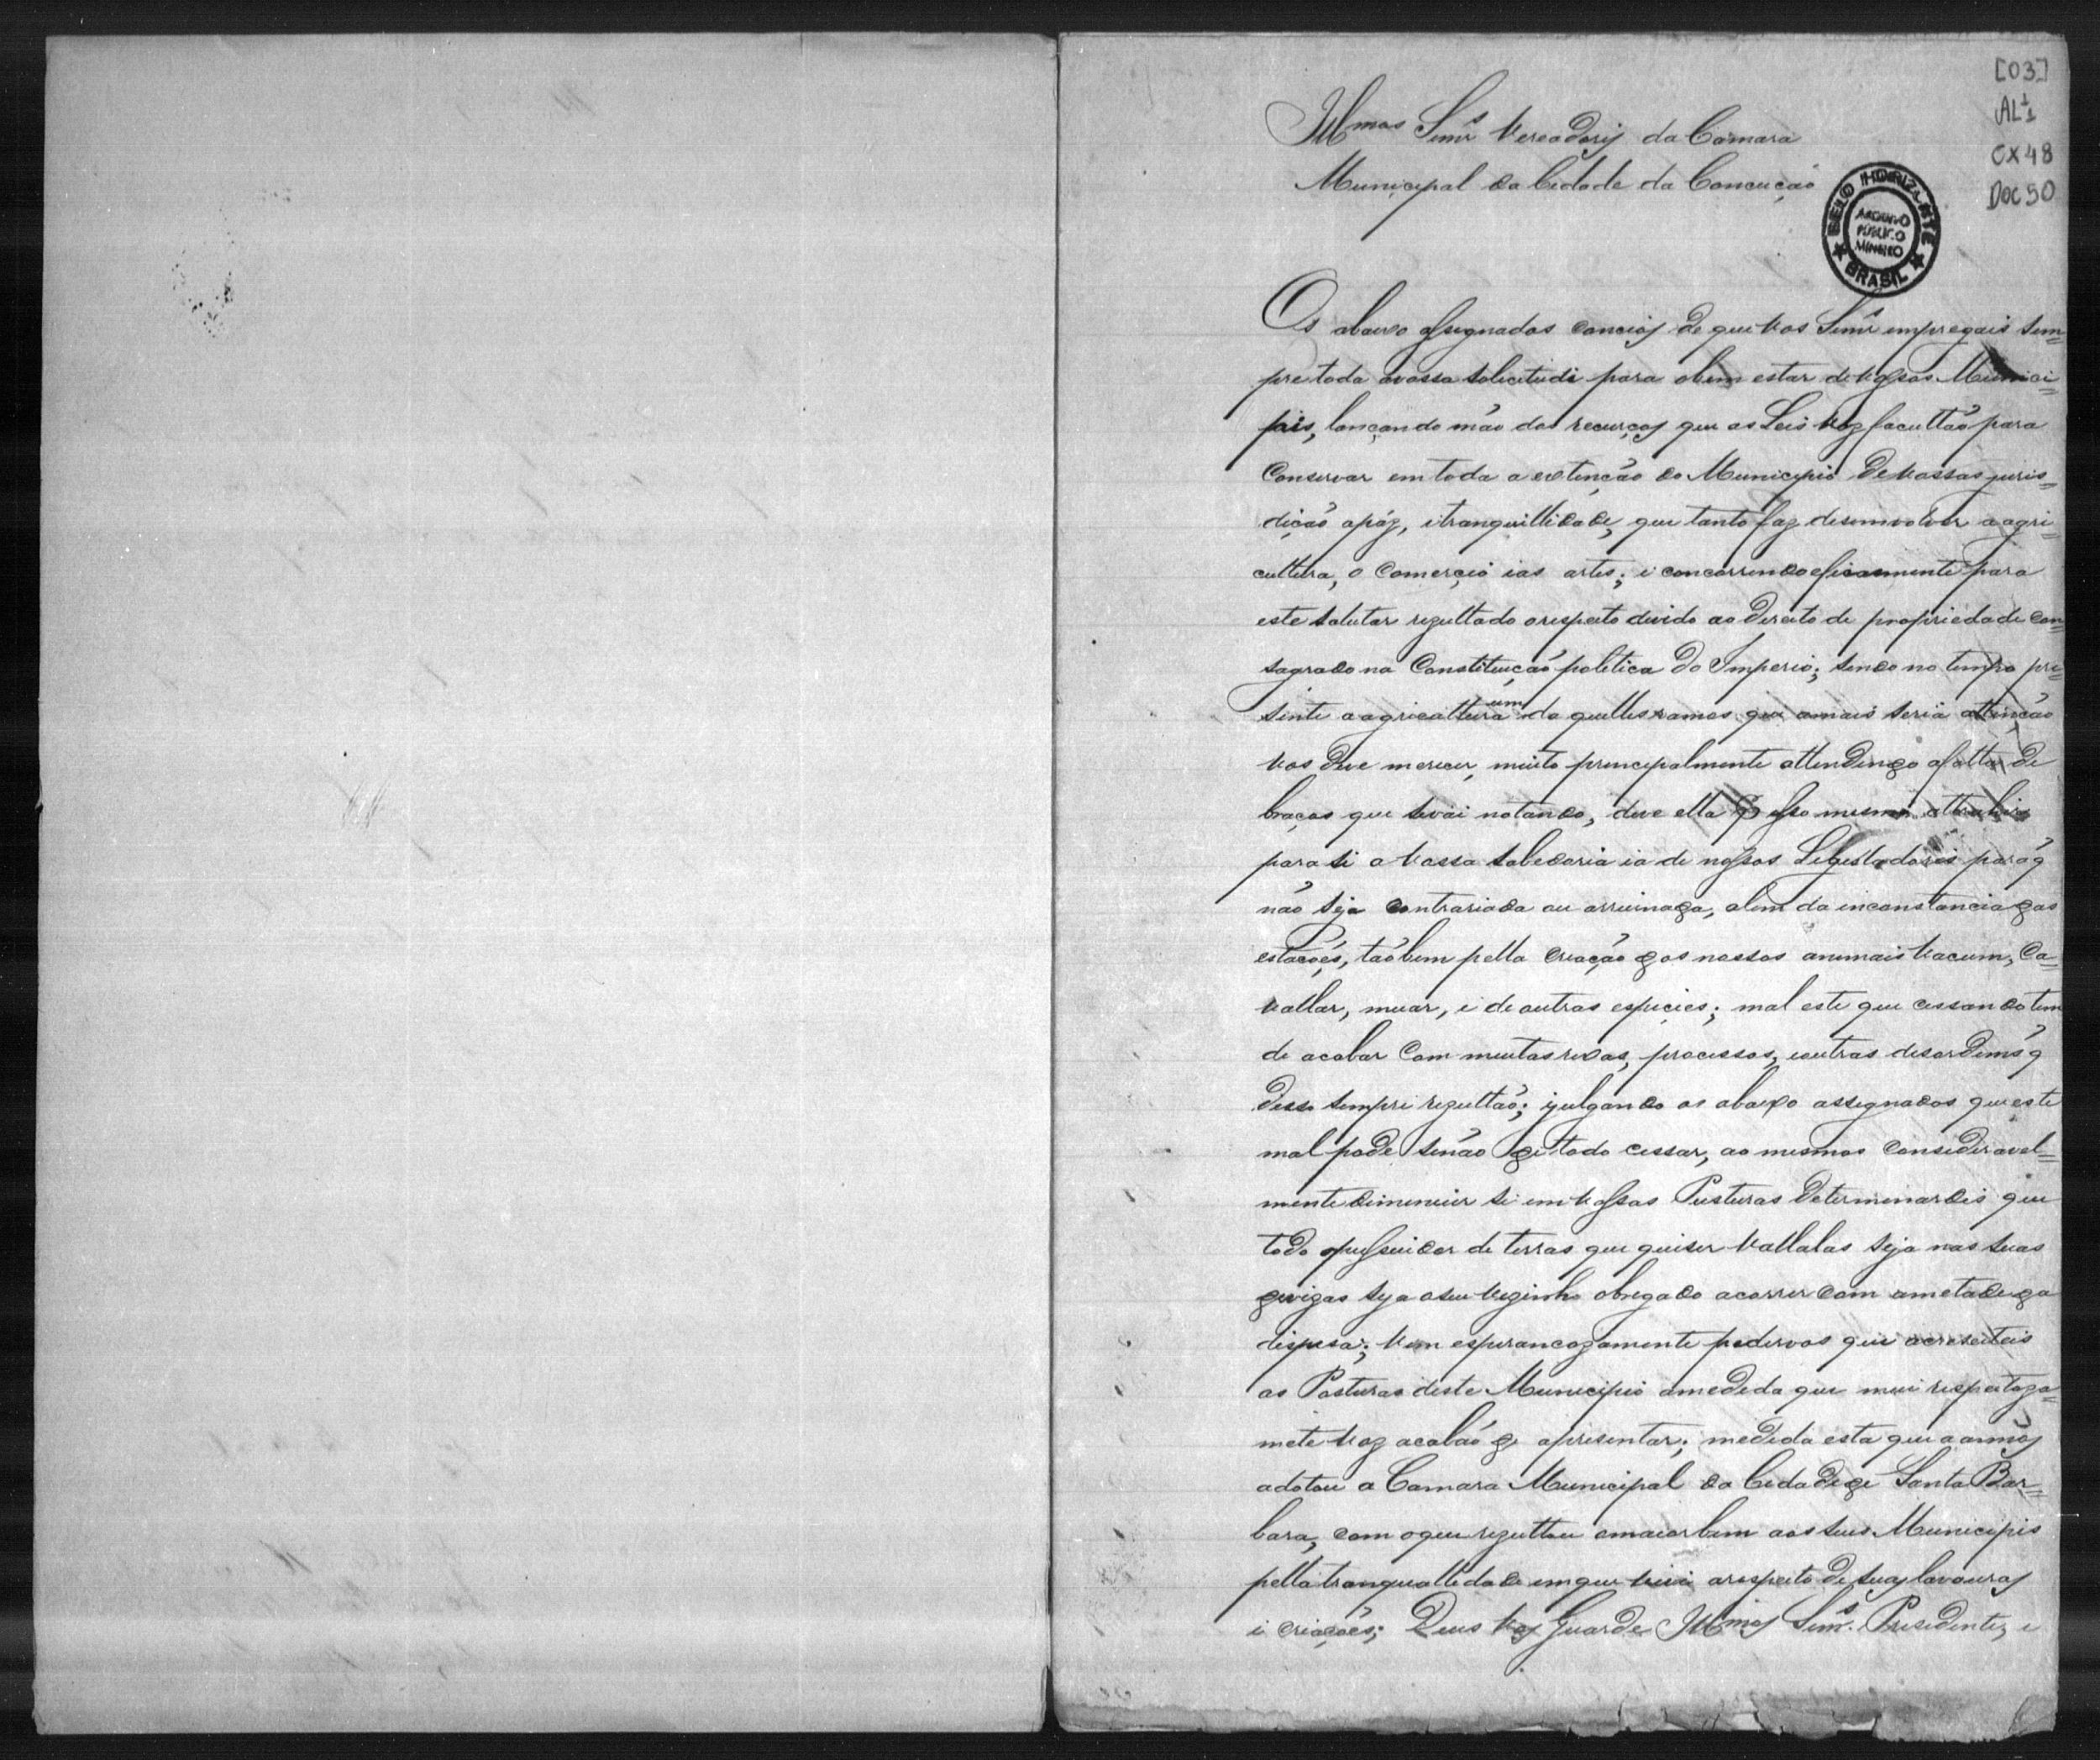 [03]
AL1
CX48
DOC 50
Illmos Senrs Vereadoris da Camara
Municipal da Cidade da Conceição
BELO HORIZONTE
ARQUIVO
PÚBLICO
MINEIRO
BRASIL
Os abaixo assegnados concios de que vos Senrs empregais sem=
pre toda avossa solicitudi para obem estar de vossos Munici=
pis, lançando mão dos recurços que as Leis vos facultão para
Conservar em toda a extenção do Municipio de vossas juris=
dição apáz, itranquillidade, que tanto faz desemvolver aagri=
cultura, o Comercio ias artes; i concorrendo eficasmente para
este salutar rezultado orespeito devido ao Direito de propriedade con=
sagrado na Constituição politica do Imperio; sendo no tempo pre=
sente aagricultura um da quelles ramos que amais seria attenção
vos deve merecer, muito principalmente attendendo afalta de
braços que sevai notando, deve ella p isso mesmo attrahir
para si a vossa sabedoria ia de nossos Legisladores para q
não seja contrariada ou arruinada, alem da inconstancia das
estações, tãobem pella criação dos nossos animais vacum, Ca=
vallar, muar, i de outras especies; mal este que cessando tem
de acabar Com muitas rixas, processos, ioutras desordems q
disso sempri rezultão; ijulgando os abaixo assegnados que este
mal pode senão de todo cessar, ao menos Consideravel=
mente diminuir si em vossas Posturas determinardis que
todo opussuidor de terras que quiser vallalas seja nas suas
divizas seja oseu vezinho obrigado acorrer com ametade da
dispesa; vem esperançozamente pedirvos que acresenteis
as Posturas deste Municipio amedida que mui respeitoza=
mete voz acabão de apresentar; medida esta que aannos
adotou a Camara Municipal da Cidade de Santa Bar=
bara, com oque rezultou omaior bem aos seus Municipis
pella tranquillidade emque vivi arespeito de suas lavouras
i criações; Deus vos Guarde Illmos Senrs. Presidente, e